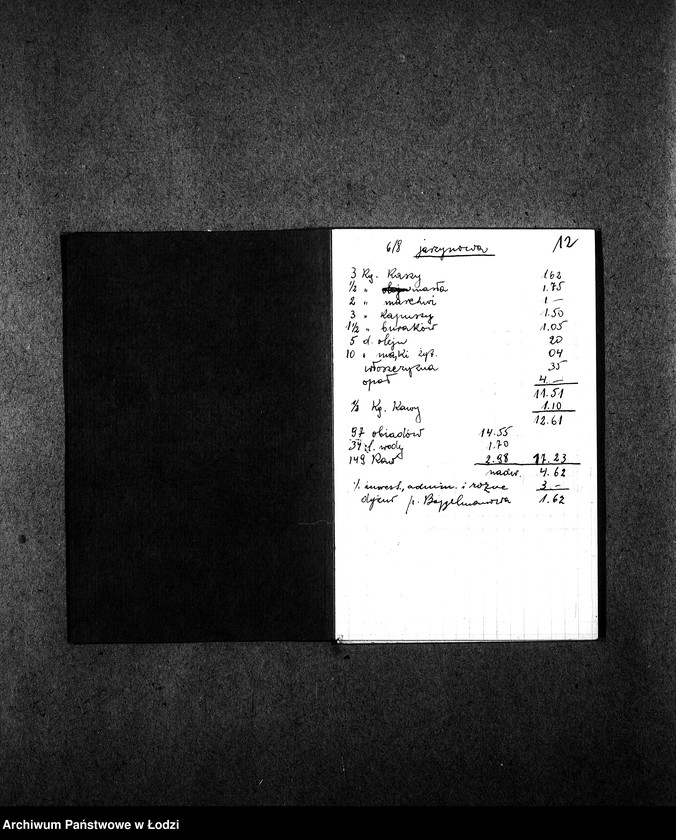 6/8 jarzynowa 12
3 Kg. Kaszy 1.62
1/2 " masła 1.75
2 " marchwi 1 —
3 " Kapusty 1.50
1 1/2 " buraków 1.05
5 d. oleju 20
10 " mąki żyt. 04
włoszczyzna 35
opał 4.—
11.51
1/2 Kg. Kawy 1.10
12.61
97 obiadów 14.55
34 wody 1.70
149 Kaw 2.98 17.23
nadw. 4.62
inwest, admin. i różne 3.—
dyżur p. 1.62
Archiwum Państwowe w Łodzi